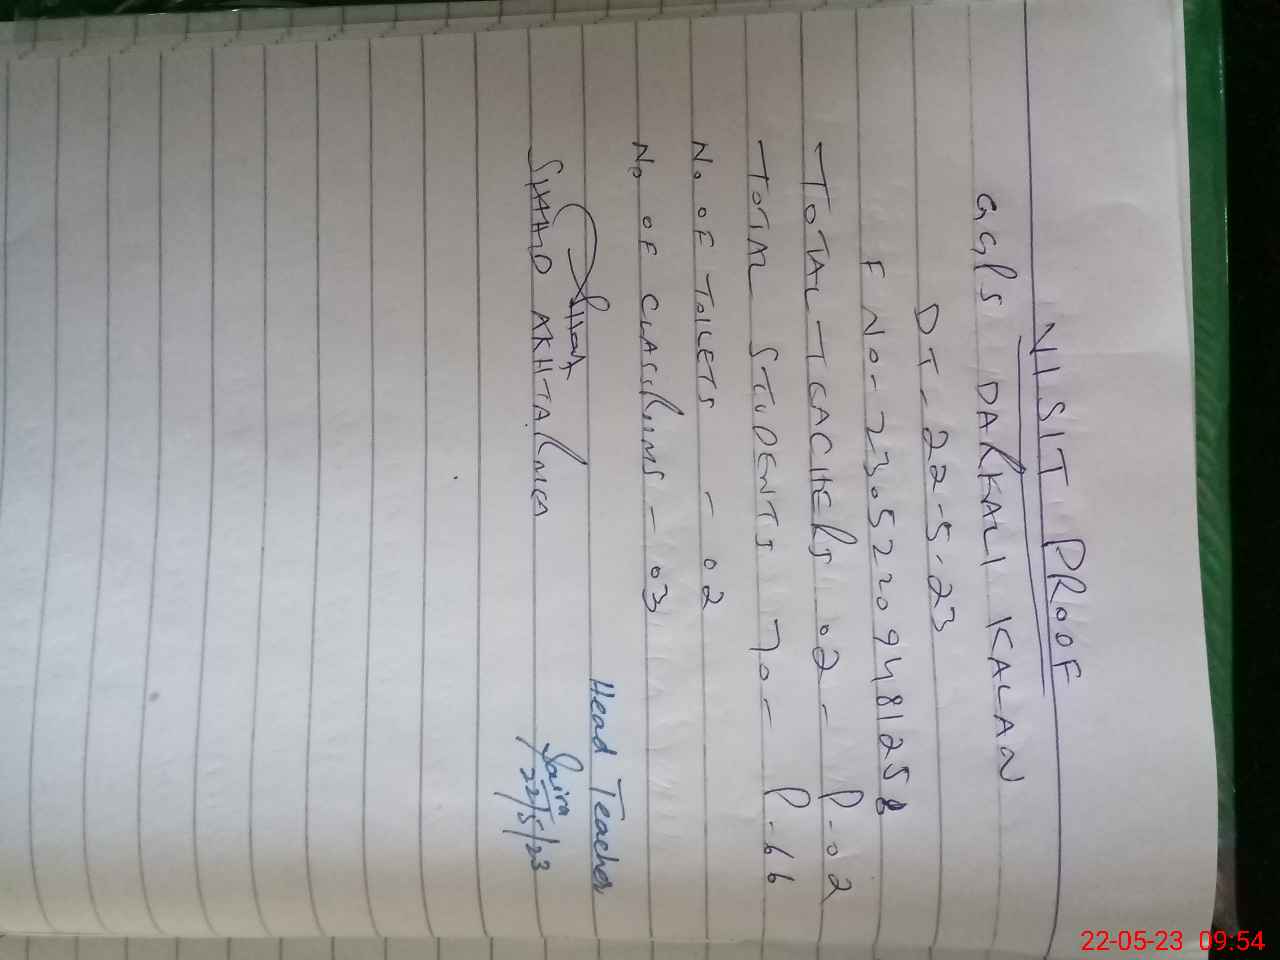 VISIT PROOF
GGPS DARKALI KALAN
DT - 22-5-23
F NO - 23052209481258
TOTAL TEACHERS 02 - P-02
TOTAL STUDENTS 70 - P-66
No OF TOILETS - 02
No OF CLASSROOMS - 03
Head Teacher
Saira
22/5/23
SHAHD AKHTAR
22-05-23 09:54